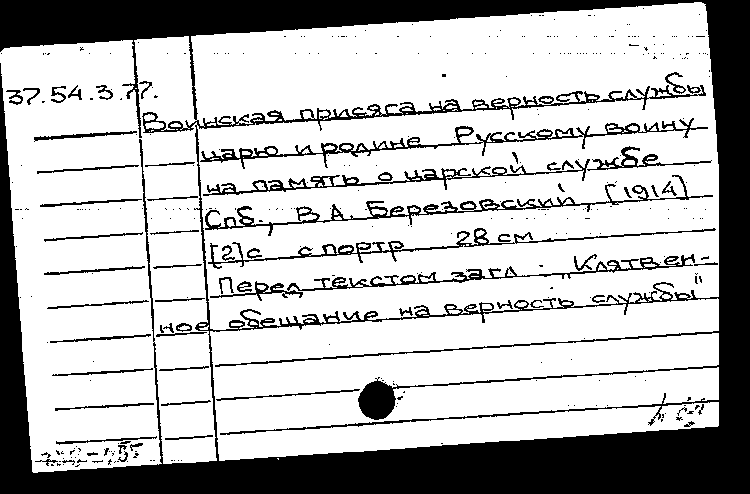 37.54.3.77.
Воинская присяга на верность службы
царю и родине. Русскому воину
на память о царской службе
Спб., В.А. Березовский, [1914]
[2]с с портр 28 см.
Перед текстом загл.: „Клятвен-
ное обещание на верность службы"